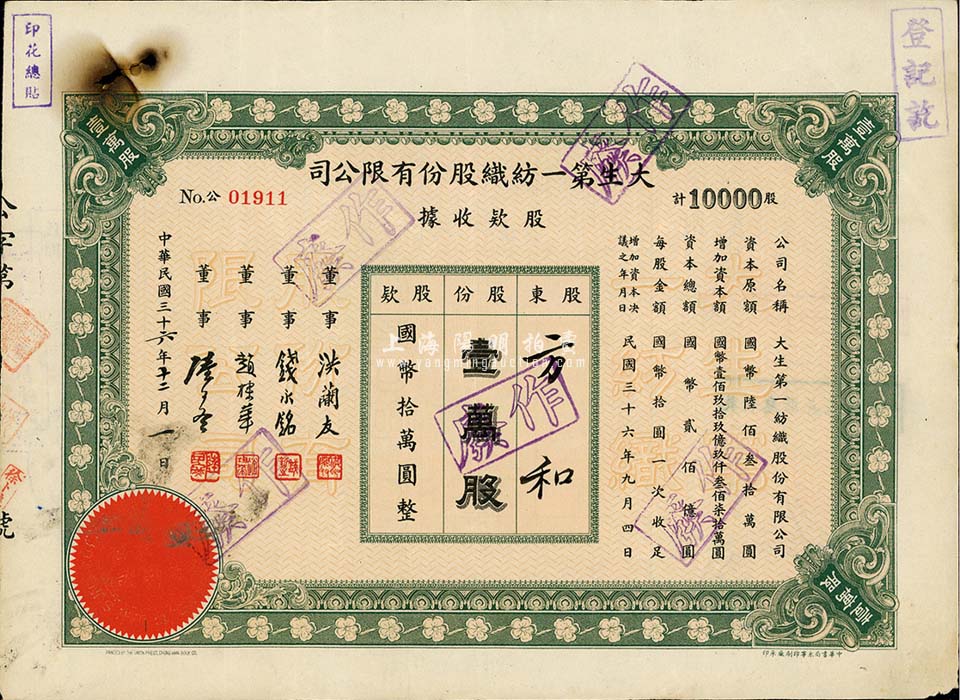 印花總貼
登記訖
壹萬股
壹萬股
大生第一紡織股份有限公司
股欵收據
No.公 01911
計10000股
公司名稱 大生第一紡織股份有限公司
資本原額 國幣陸佰叁拾萬圓
增加資本額 國幣壹佰玖拾玖億玖仟叁佰柒拾萬圓
資本總額 國幣貳佰億圓
每股金額 國幣拾圓一次收足
增加資本決議之年月日 民國三十六年九月四日
股東
二方和
股份
壹萬股
股欵
國幣拾萬圓整
董事 洪蘭友
董事 錢永銘
董事 趙棣華
董事 陸子冬
中華民國三十六年十二月一日
作廢
作廢
作廢
作廢
作廢
壹萬股
公字第
號
上海陽明拍賣
www.yangmingauction.com
中華書局永寧印刷廠承印